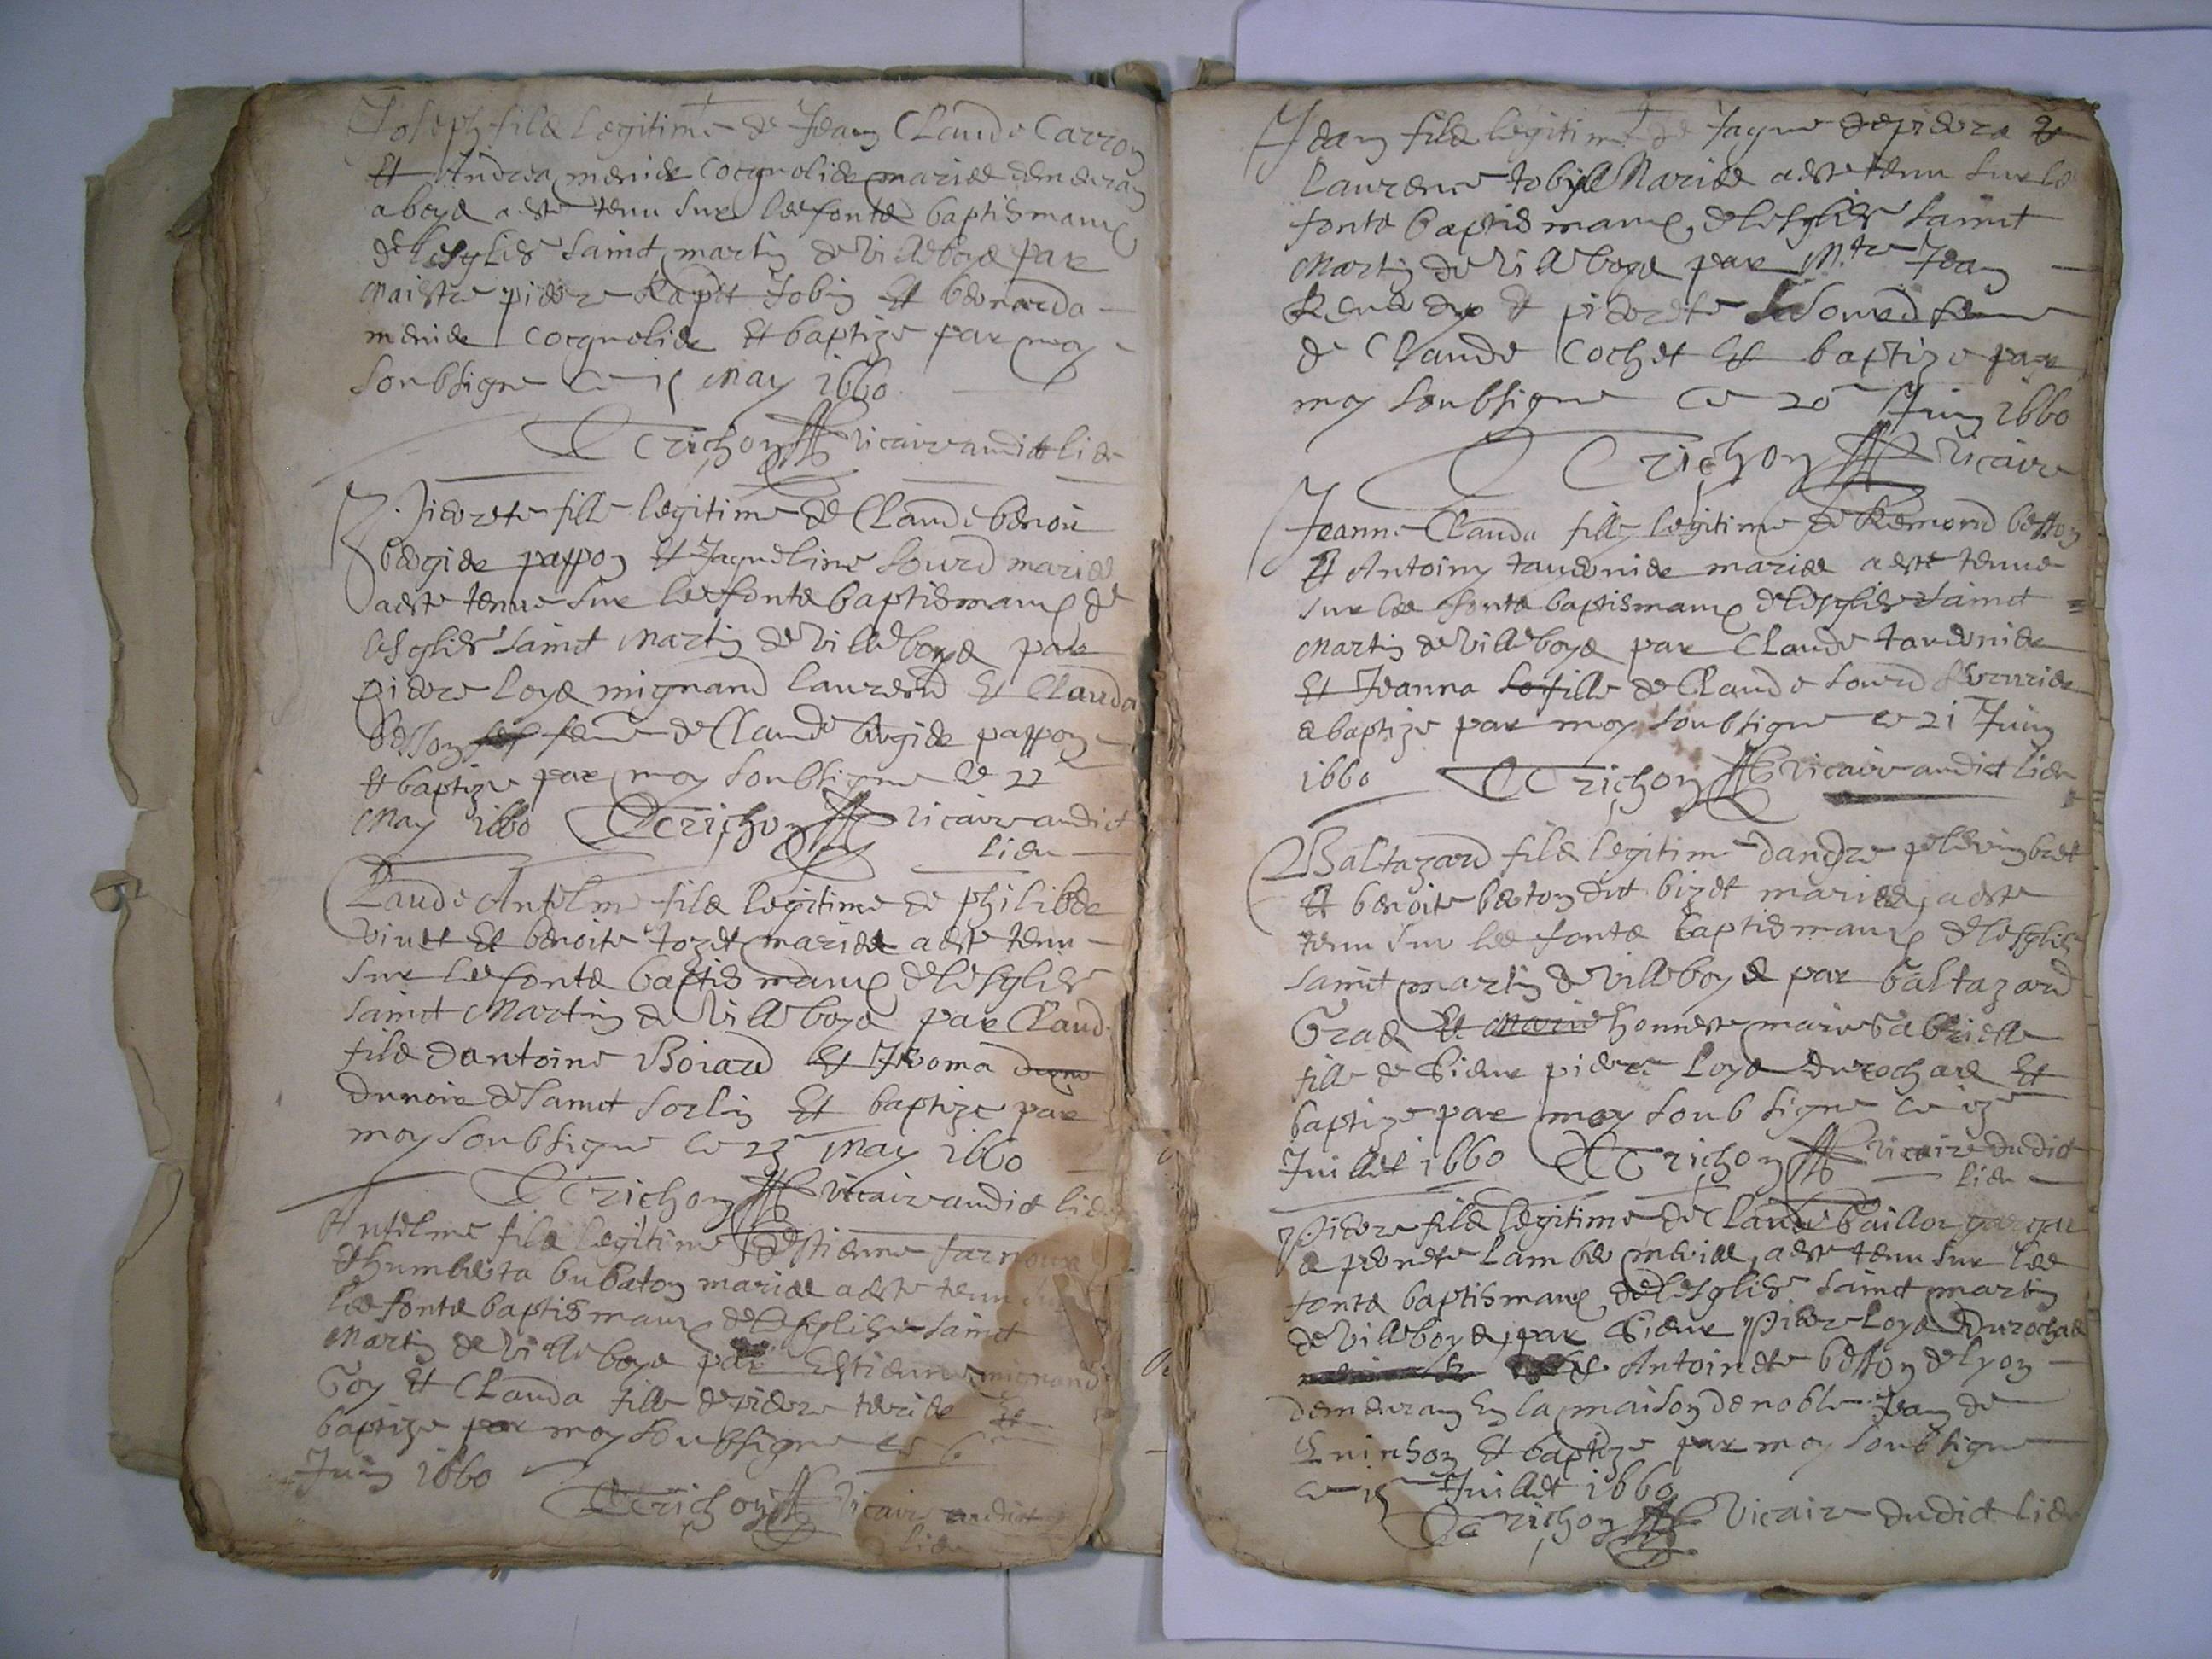 Joseph fils legitime de Jean Claude Carron
Et Andrea menier mariés demeuran
a boys a esté tenu sur les fonts baptismaux
de lesglise sainct martin de Villeboys par
Maistre pierre Tobin Et benarda
menier Et baptize par moy
soubsigne ce 15 May 1660
Trichon vicaire audict lieu
Pierrete fille legitime de Claude benoit
pappon Et Jaqueline sourd mariés
a esté tenue sur les fonts baptismaux de
lesglise sainct Martin de Villeboys par
pierre Loys mignand laurend Et Clauda
besson feme de Claude pappon
Et baptize par moy soubsigne le 22
May 1660 Trichon vicaire audict
lieu
Claude Antelme fils legitime de philiber
vinet Et benoite tozet mariés a esté tenu
sur les fonts baptismaux de lesglise
sainct Martin de Villeboys par Claude
fils dantoine Boiard Et
dunoir de sainct sorlin Et baptize par
moy soubsigne ce 23 May 1660
Trichon vicaire audict lieu
Antelme fils legitime destienne
Et humberta bubaton mariés a esté tenu sur
les fonts baptismaux de lesglise sainct
Martin de Villeboys par Estienne mignand
Goy Et Clauda fille de pierre Et
baptize par moy soubsigne ce 6
Juin 1660
Trichon vicaire audict
lieu
Jean fils legitime de Jayme de
Laurence tobin Mariés a esté tenu sur les
fonts baptismaux de lesglise sainct
Martin de Villeboys par Mtre Jean
Et pierrete sourd feme
de Claude Cochet Et baptize par
moy soubsigne ce 20 Juin 1660
Trichon vicaire
Jeanne Clauda fille legitime de Remond besson
Et Antoina mariés a esté tenue
sur les fonts baptismaux de lesglise sainct
Martin de Villeboys par Claude
Et Jeanna fille de Claude sourd
Et baptize par moy soubsigne ce 21 Juin
1660 Trichon vicaire audict lieu
Baltazard fils legitime dandre
Et benoite dit bizet mariés, a esté
tenu sur les fonts baptismaux de lesglise
sainct martin de villeboys par baltazard
Gras honneste marie Gabrielle
fille de Sieur pierre Loys durochas Et
baptize par moy soubsigne ce
Juillet 1660 Trichon vicaire dudict
lieu
Pierre fils legitime de Claude
Et lambert mariés, a esté tenu sur les
fonts baptismaux de lesglise sainct martin
de Villeboys, par Sieur Pierre Loys Durochas
Antoinete besson de lyon
demeuran En la maison de noble Jean de
Quinson Et baptize par moy soubsigne
ce 15 Juillet 1660
Trichon Vicaire dudict lieu